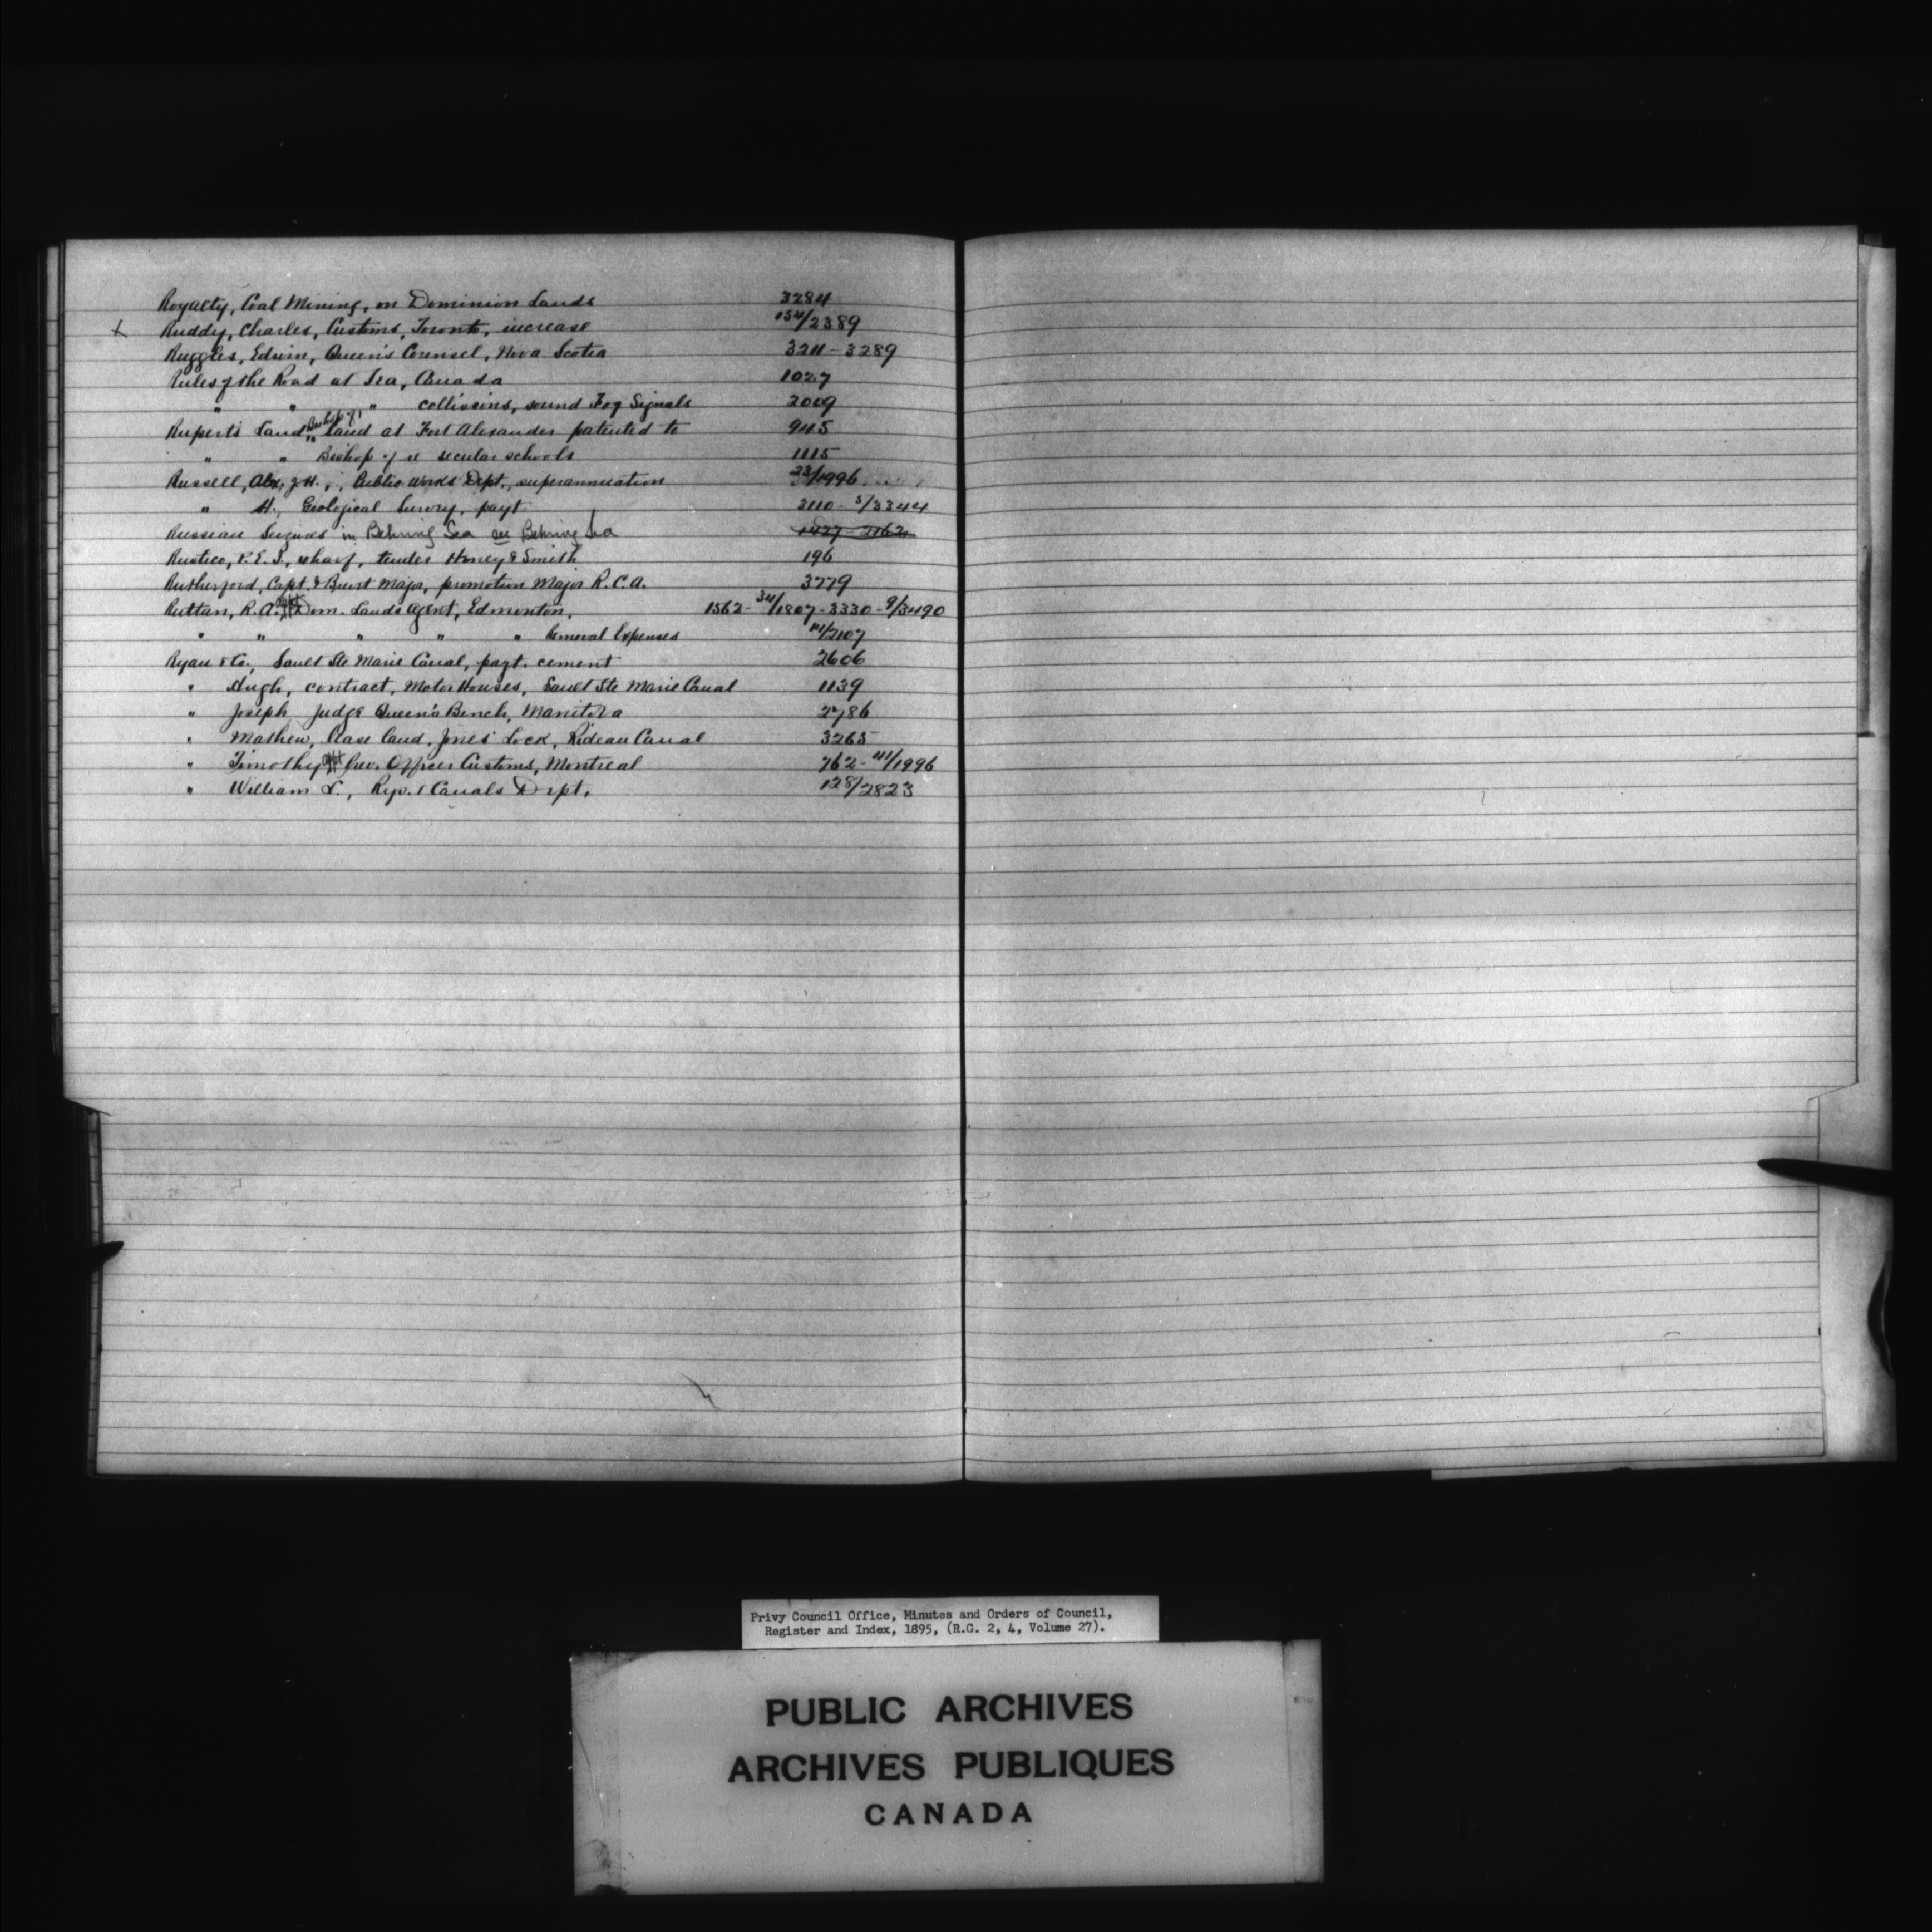 Royalty, Coal Mining, on Dominion Lands 3284
x Ruddy, Charles, Customs, Toronto, increase 154/2389
Ruggles, Edwin, Queen's Counsel, Nova Scotia 3211 - 3289
Rules of the Road at Sea, Canada 1027
" " " collisions, sound Fog Signals 2009
Rupert's Land, Bishop of, land at Fort Alexander patented to 945
" " Bishop of re secular schools 1115
Russell, Alex. J. H., Public Works Dept., superannuation 23/1996
" H., Geological Survey, payt 3110 - 5/3344
Russian Seizures in Behring Sea see Behring Sea 1427 - 2162
Rustico, P.E.I., wharf, tender Honey & Smith 196
Rutherford, Capt. & Brevt Major, promotion Major R.C.A. 3779
Ruttan, R.A. appt Dom. Lands Agent, Edmonton, 1562 - 34/1807 - 3330 - 9/3490
" " " " " Removal Expenses 14/2107
Ryan & Co., Sault Ste Marie Canal, payt. cement 2606
" Hugh, contract, Motor Houses, Sault Ste Marie Canal 1139
" Joseph Judge Queen's Bench, Manitoba 2786
" Mathew, lease land, Jones' Lock, Rideau Canal 3265
" Timothy appt Prev. Officer Customs, Montreal 762 - 41/1996
" William L., Rys. & Canals Dept. 128/2823
Privy Council Office, Minutes and Orders of Council,
Register and Index, 1895, (R.G. 2, 4, Volume 27).
PUBLIC ARCHIVES
ARCHIVES PUBLIQUES
CANADA